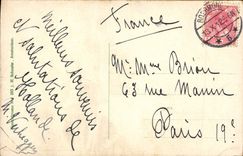 Meilleurs souvenirs
et salutations de
Hollande.
France
M. Mme Brion
63 rue Manin
Paris 19e